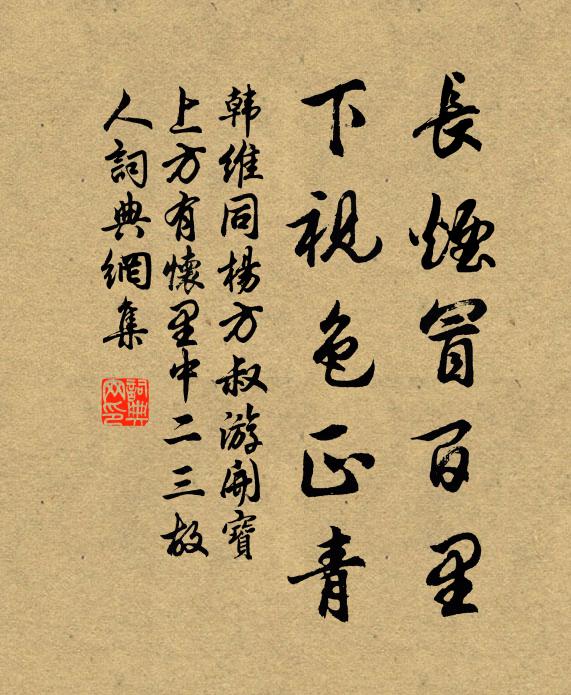 長煙冒百里
下視色正青
韩維同楊方叔游開寶
上方有懐里中二三故
人詞典網集
詞典
網印